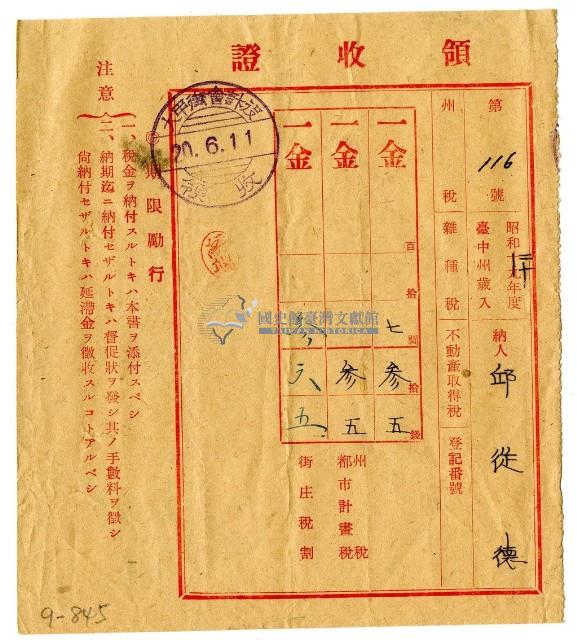 領收證
第 116 號
昭和二十年度
臺中州歲入
納人 邱從德
州稅 雜種稅 不動產取得稅 登記番號
百拾圓拾錢
一金 七 參五 州稅
一金 參五 都市計畫稅
一金 參 六五 街庄稅割
期限勵行
注意
一、稅金ヲ納付スルトキハ本書ヲ添付スベシ
二、納期迄ニ納付セザルトキハ督促狀ヲ發シ其ノ手數料ヲ徵シ
尙納付セザルトキハ延滯金ヲ徵收スルコトアルベシ
20.6.11
領收
國史館臺灣文獻館
TAIWAN HISTORICA
9-845